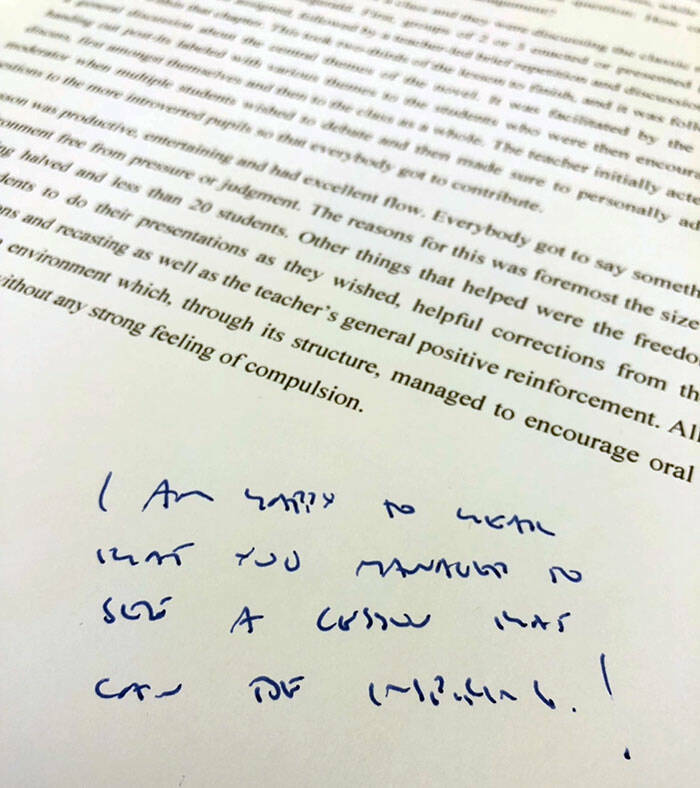 class and they were discussing the classic
First, groups of 2 or 3 enacted or presented
within that chapter. This took two-thirds of the lesson to finish, and it was
followed by a teacher-led brief repetition and discussion
a general discussion about the central themes of the novel. It was facilitated by the
handing out post-its labeled with various themes to the students who were then encour
discuss, first amongst themselves and then to the class as a whole. The teacher initially acte
moderator when multiple students wished to debate and then made sure to personally ad
tions to the more introverted pupils so that everybody got to contribute.
son was productive, entertaining and had excellent flow. Everybody got to say someth
ronment free from pressure or judgment. The reasons for this was foremost the size
ng halved and less than 20 students. Other things that helped were the freedo
dents to do their presentations as they wished, helpful corrections from th
ons and recasting as well as the teacher's general positive reinforcement. All
environment which, through its structure, managed to encourage oral
without any strong feeling of compulsion.
I AM HAPPY TO HEAR
THAT YOU MANAGED TO
SEE A LESSON THAT
CAN BE INSPIRING!